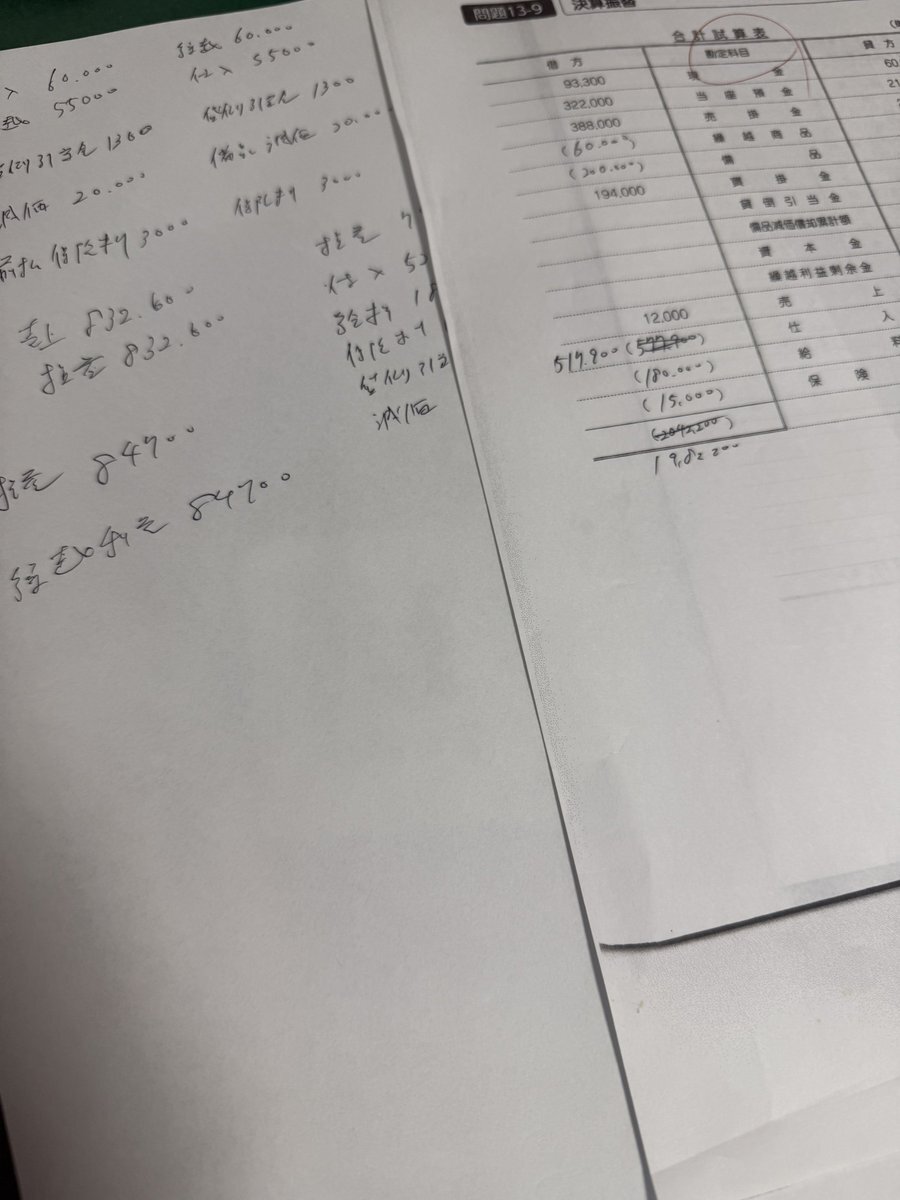 入 60.000 繰越 60.000
55000 仕入 55000
貸倒引当金 1300 貸倒引当金 1300
減価 20.000 備品減価 20.000
前払保険料 3000 保険料 3000
売上 832.600 損益
損益 832.600 仕入 52
給料 18
保険料
貸倒引当
減価
損益 84700
繰越利益 84700
問題13-9 決算振替
合計試算表
借方 勘定科目 貸方
93,300 現金 60
322,000 当座預金 21
388,000 売掛金
(60.000) 繰越商品
(200.000) 備品
194,000 買掛金
貸倒引当金
備品減価償却累計額
資本金
繰越利益剰余金
12,000 売上
517.900 (577.900) 仕入
(180.000) 給料
(15.000) 保険
(2042200)
1982200